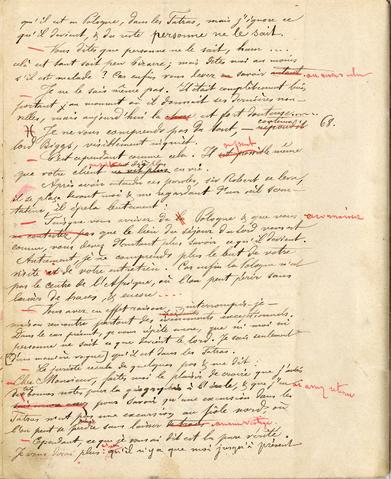 qu'il est en Pologne, dans les Tatras, mais j'ignore ce
qu'il devient, & du reste personne ne le sait.
— Vous dites que personne ne le sait, hum ....
cela est tout soit peu bizarre, mais dites moi au moins
s'il est malade? Car enfin vous devez en savoir
— Je ne le sais même pas. Il était complètement bien
portant au moment où il donnait ses dernières nou-
velles, mais aujourd'hui la chose est fort douteuse.
— Je ne vous comprends pas du tout, — 68.
lord Biggs, visiblement inquiet.
— C'est cependant comme cela. Il même
que votre client en vie.
Après avoir entendu ces paroles, sir Robert se leva,
il se plaça devant moi & me regardant d'un œil
il parla lentement:
— Puisque vous arrivez de la Pologne & que vous
que le lieu du séjour du lord vous est
connu, vous devez d'autant plus savoir ce qu'il devient.
Autrement, je ne comprends plus le but de votre
visite et de votre entretien. Car enfin la Pologne n'est
pas le centre de l'Afrique, où l'on peut périr sans
laisser de traces, & encore....
— Vous avez en effet raison, interrompis-je —
mais on rencontre partout des événements exceptionnels.
Dans le cas présent, je vous répète donc, que ni moi ni
personne ne sait ce que devient le lord. Je sais seulement
(d'une manière vague) qu'il est dans les Tatras.
Le juriste recula de quelques pas & me dit:
— Cher Monsieur, faites moi le plaisir de croire que j'ai
de bonnes notes pour la géographie à l'école, & que j'en ai
pour savoir qu'une excursion dans les
Tatras n'est pas une excursion au pôle nord, où
l'on peut se perdre sans laisser de aucun vestige.
— Cependant, ce que je vous ai dit est la pure vérité.
Je vous dirai plus: qu'il n'y a que moi jusqu'à présent